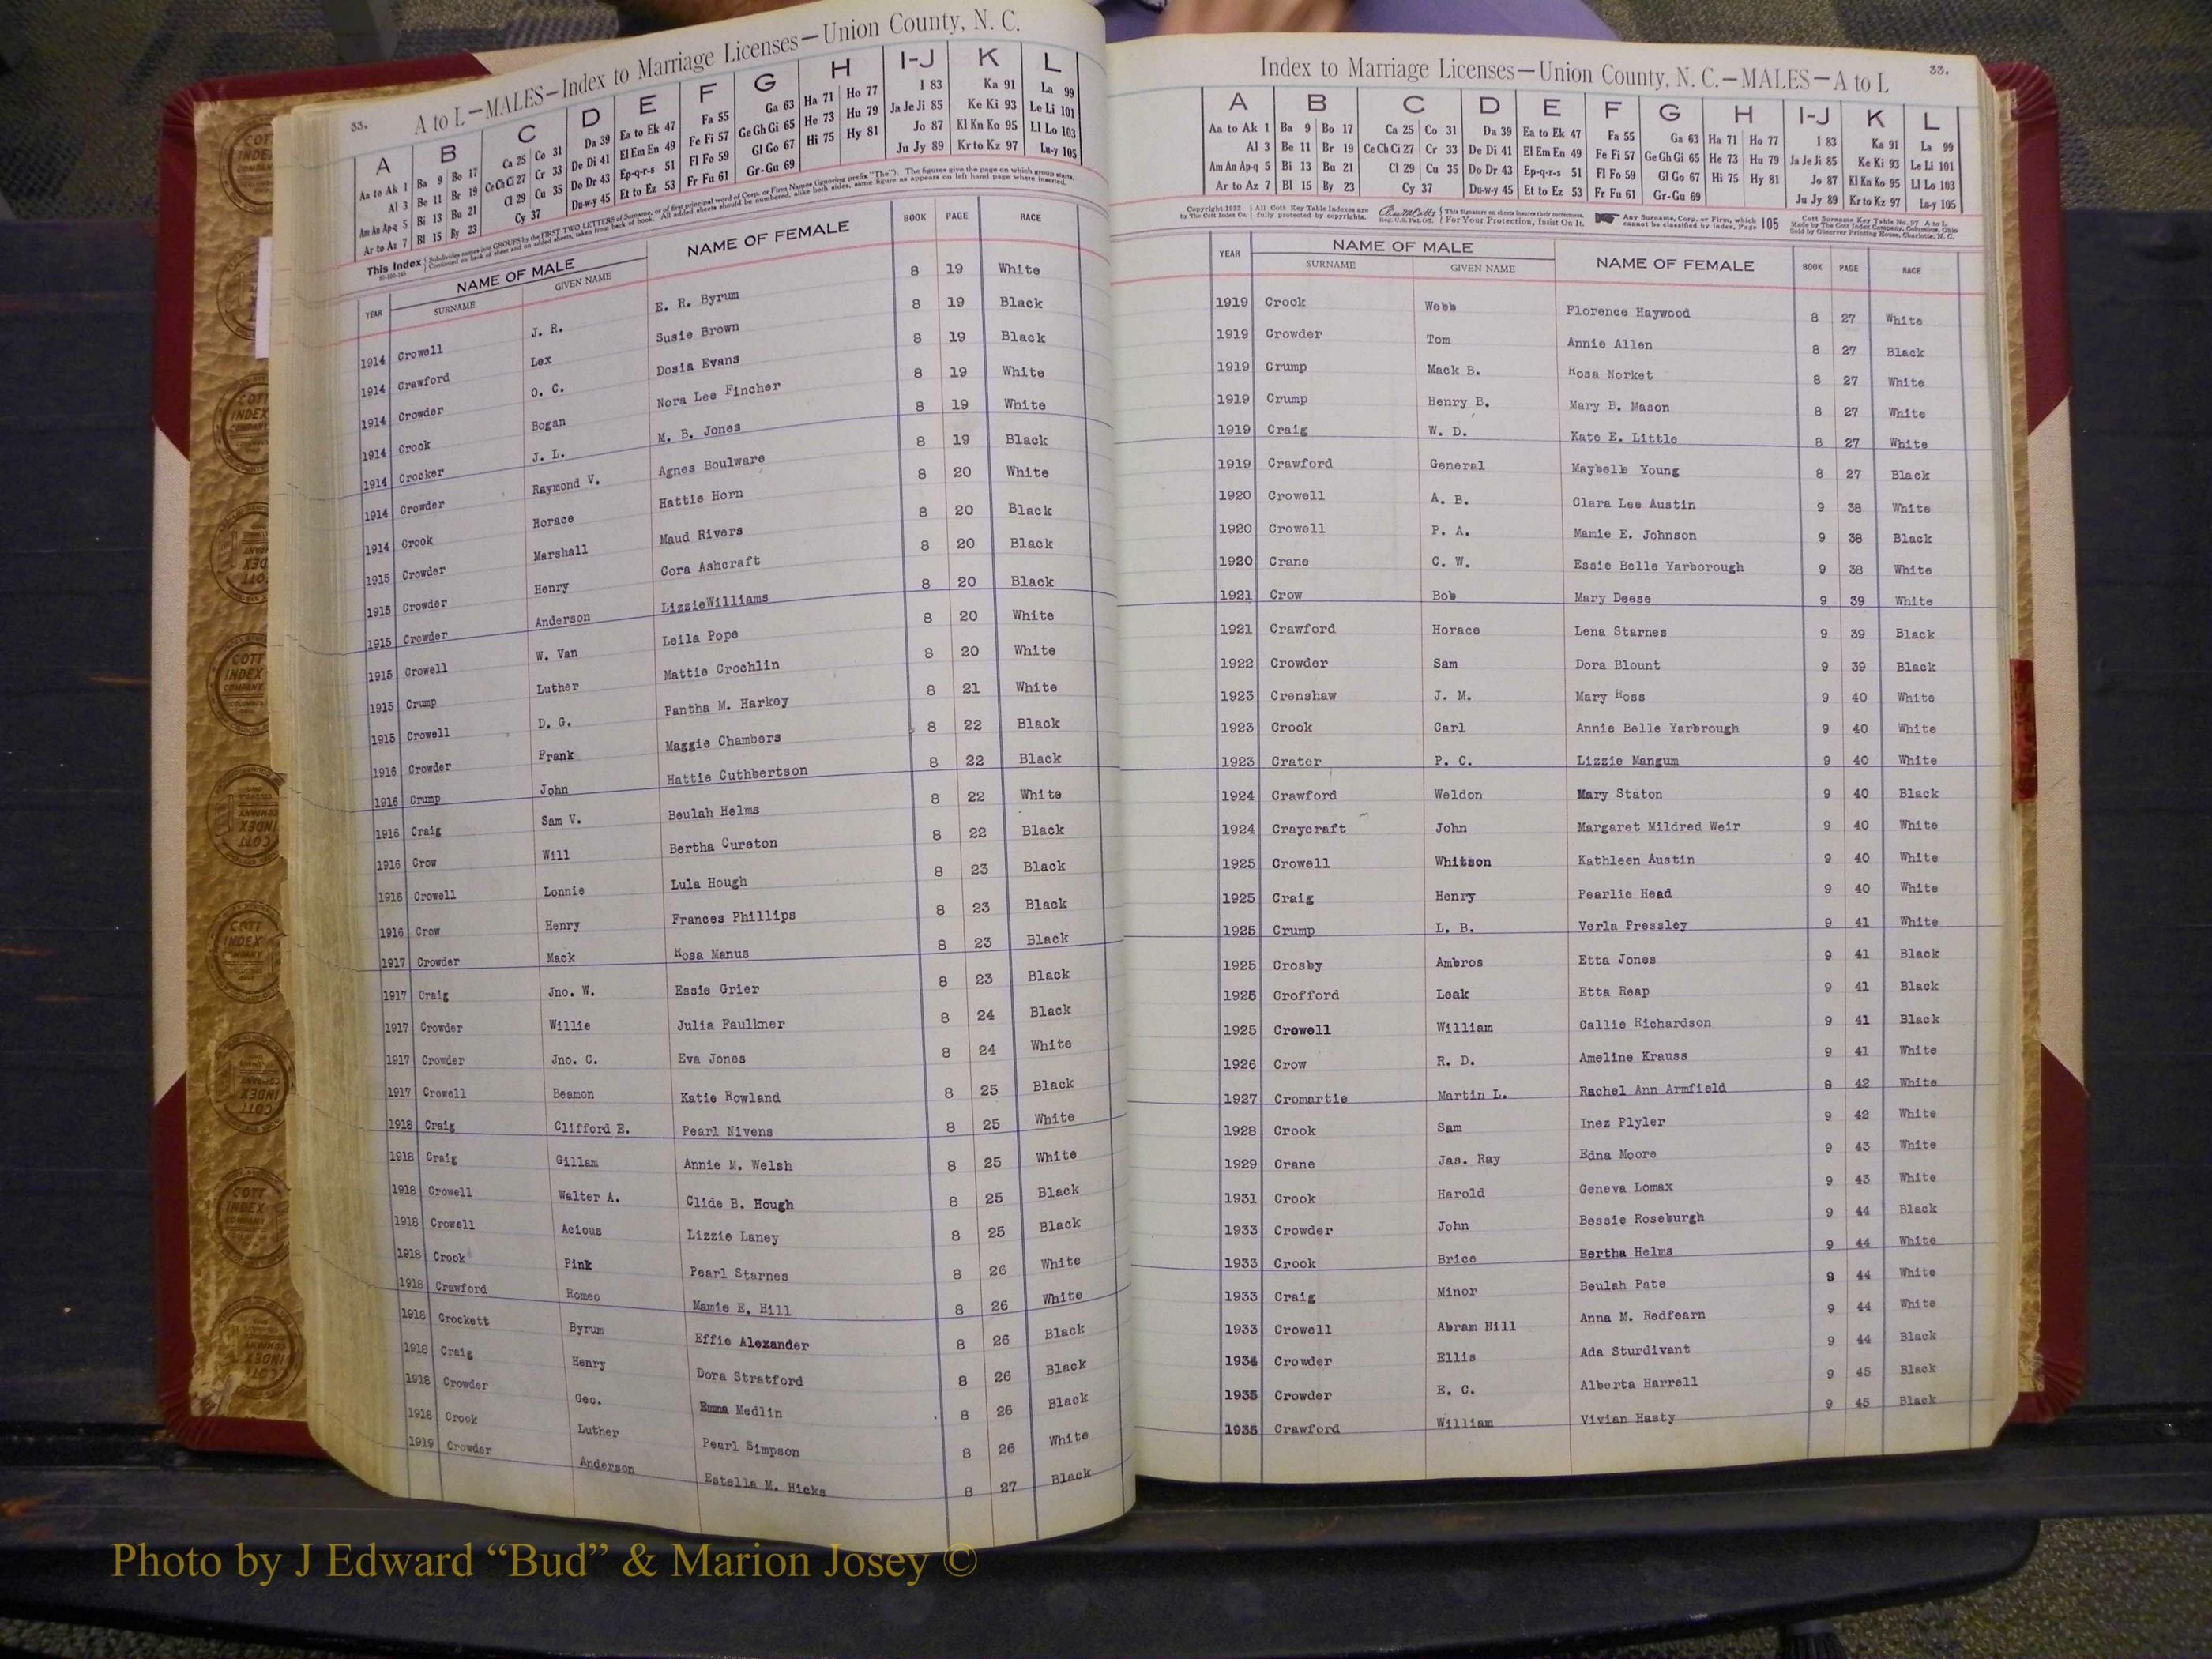 33. A to L—MALES—Index to Marriage Licenses—Union County, N. C.
A B C D E F G H I-J K L
Aa to Ak 1 Ba 9 Bo 17 Ca 25 Co 31 Da 39 Ea to Ek 47 Fa 55 Ga 63 Ha 71 Ho 77 I 83 Ka 91 La 99
Al 3 Be 11 Br 19 Ce Ch Ci 27 Cr 33 De Di 41 El Em En 49 Fe Fi 57 Ge Gh Gi 65 He 73 Hu 79 Ja Je Ji 85 Ke Ki 93 Le Li 101
Am An Ap-q 5 Bi 13 Bu 21 Cl 29 Cu 35 Do Dr 43 Ep-q-r-s 51 Fl Fo 59 Gl Go 67 Hi 75 Hy 81 Jo 87 Kl Kn Ko 95 Ll Lo 103
Ar to Az 7 Bl 15 By 23 Cy 37 Du-w-y 45 Et to Ez 53 Fr Fu 61 Gr-Gu 69 Ju Jy 89 Kr to Kz 97 Lu-y 105
This Index Subdivides names into GROUPS by the FIRST TWO LETTERS of Surname, or of first principal word of Corp. or Firm Names (ignoring prefix "The"). The figures give the page on which group starts.
Continued on back of sheet and on added sheets, taken from back of book. All added sheets should be numbered, alike both sides, same figure as appears on left hand page where inserted.
YEAR NAME OF MALE NAME OF FEMALE BOOK PAGE RACE
SURNAME GIVEN NAME
1914 Crowell J. R. E. R. Byrum 8 19 White
1914 Crawford Lex Susie Brown 8 19 Black
1914 Crowder O. C. Dosia Evans 8 19 Black
1914 Crook Bogan Nora Lee Fincher 8 19 White
1914 Crocker J. L. M. B. Jones 8 19 White
1914 Crowder Raymond V. Agnes Boulware 8 19 Black
1914 Crook Horace Hattie Horn 8 20 White
1915 Crowder Marshall Maud Rivers 8 20 Black
1915 Crowder Henry Cora Ashcraft 8 20 Black
1915 Crowder Anderson LizzieWilliams 8 20 Black
1915 Crowell W. Van Leila Pope 8 20 White
1915 Crump Luther Mattie Crochlin 8 20 White
1915 Crowell D. G. Pantha M. Harkey 8 21 White
1916 Crowder Frank Maggie Chambers 8 22 Black
1916 Crump John Hattie Cuthbertson 8 22 Black
1916 Craig Sam V. Beulah Helms 8 22 White
1916 Crow Will Bertha Cureton 8 22 Black
1916 Crowell Lonnie Lula Hough 8 23 Black
1916 Crow Henry Frances Phillips 8 23 Black
1917 Crowder Mack Rosa Manus 8 23 Black
1917 Craig Jno. W. Essie Grier 8 23 Black
1917 Crowder Willie Julia Faulkner 8 24 Black
1917 Crowder Jno. C. Eva Jones 8 24 White
1917 Crowell Beamon Katie Rowland 8 25 Black
1918 Craig Clifford E. Pearl Nivens 8 25 White
1918 Craig Gillam Annie M. Welsh 8 25 White
1918 Crowell Walter A. Clide B. Hough 8 25 Black
1918 Crowell Acious Lizzie Laney 8 25 Black
1918 Crook Pink Pearl Starnes 8 26 White
1918 Crawford Romeo Mamie E. Hill 8 26 White
1918 Crockett Byrum Effie Alexander 8 26 Black
1918 Craig Henry Dora Stratford 8 26 Black
1918 Crowder Geo. Emma Medlin 8 26 Black
1918 Crook Luther Pearl Simpson 8 26 White
1919 Crowder Anderson Estella M. Hicks 8 27 Black
Index to Marriage Licenses—Union County, N. C.—MALES—A to L 33.
A B C D E F G H I-J K L
Aa to Ak 1 Ba 9 Bo 17 Ca 25 Co 31 Da 39 Ea to Ek 47 Fa 55 Ga 63 Ha 71 Ho 77 I 83 Ka 91 La 99
Al 3 Be 11 Br 19 Ce Ch Ci 27 Cr 33 De Di 41 El Em En 49 Fe Fi 57 Ge Gh Gi 65 He 73 Hu 79 Ja Je Ji 85 Ke Ki 93 Le Li 101
Am An Ap-q 5 Bi 13 Bu 21 Cl 29 Cu 35 Do Dr 43 Ep-q-r-s 51 Fl Fo 59 Gl Go 67 Hi 75 Hy 81 Jo 87 Kl Kn Ko 95 Ll Lo 103
Ar to Az 7 Bl 15 By 23 Cy 37 Du-w-y 45 Et to Ez 53 Fr Fu 61 Gr-Gu 69 Ju Jy 89 Kr to Kz 97 Lu-y 105
Copyright 1932 All Cott Key Table Indexes are This Signature on sheets insures their correctness. Any Surname, Corp. or Firm, which 105 Cott Surname Key Table No. 97 A to L
by The Cott Index Co. fully protected by copyrights. Reg. U.S. Pat. Off. For Your Protection, Insist On It. cannot be classified by Index, Page Made by The Cott Index Company, Columbus, Ohio
Sold by Observer Printing House, Charlotte, N. C.
YEAR NAME OF MALE NAME OF FEMALE BOOK PAGE RACE
SURNAME GIVEN NAME
1919 Crook Webb Florence Haywood 8 27 White
1919 Crowder Tom Annie Allen 8 27 Black
1919 Crump Mack B. Rosa Norket 8 27 White
1919 Crump Henry B. Mary B. Mason 8 27 White
1919 Craig W. D. Kate E. Little 8 27 White
1919 Crawford General Maybelle Young 8 27 Black
1920 Crowell A. B. Clara Lee Austin 9 38 White
1920 Crowell P. A. Mamie E. Johnson 9 38 Black
1920 Crane C. W. Essie Belle Yarborough 9 38 White
1921 Crow Bob Mary Deese 9 39 White
1921 Crawford Horace Lena Starnes 9 39 Black
1922 Crowder Sam Dora Blount 9 39 Black
1923 Crenshaw J. M. Mary Ross 9 40 White
1923 Crook Carl Annie Belle Yarbrough 9 40 White
1923 Crater P. C. Lizzie Mangum 9 40 White
1924 Crawford Weldon Mary Staton 9 40 Black
1924 Craycraft John Margaret Mildred Weir 9 40 White
1925 Crowell Whitson Kathleen Austin 9 40 White
1925 Craig Henry Pearlie Head 9 40 White
1925 Crump L. B. Verla Pressley 9 41 White
1925 Crosby Ambros Etta Jones 9 41 Black
1925 Crofford Leak Etta Reap 9 41 Black
1925 Crowell William Callie Richardson 9 41 Black
1926 Crow R. D. Ameline Krauss 9 41 White
1927 Cromartie Martin L. Rachel Ann Armfield 9 42 White
1928 Crook Sam Inez Plyler 9 42 White
1929 Crane Jas. Ray Edna Moore 9 43 White
1931 Crook Harold Geneva Lomax 9 43 White
1933 Crowder John Bessie Roseburgh 9 44 Black
1933 Crook Brice Bertha Helms 9 44 White
1933 Craig Minor Beulah Pate 9 44 White
1933 Crowell Abram Hill Anna M. Redfearn 9 44 White
1934 Crowder Ellis Ada Sturdivant 9 44 Black
1935 Crowder E. C. Alberta Harrell 9 45 Black
1935 Crawford William Vivian Hasty 9 45 Black
Photo by J Edward “Bud” & Marion Josey ©